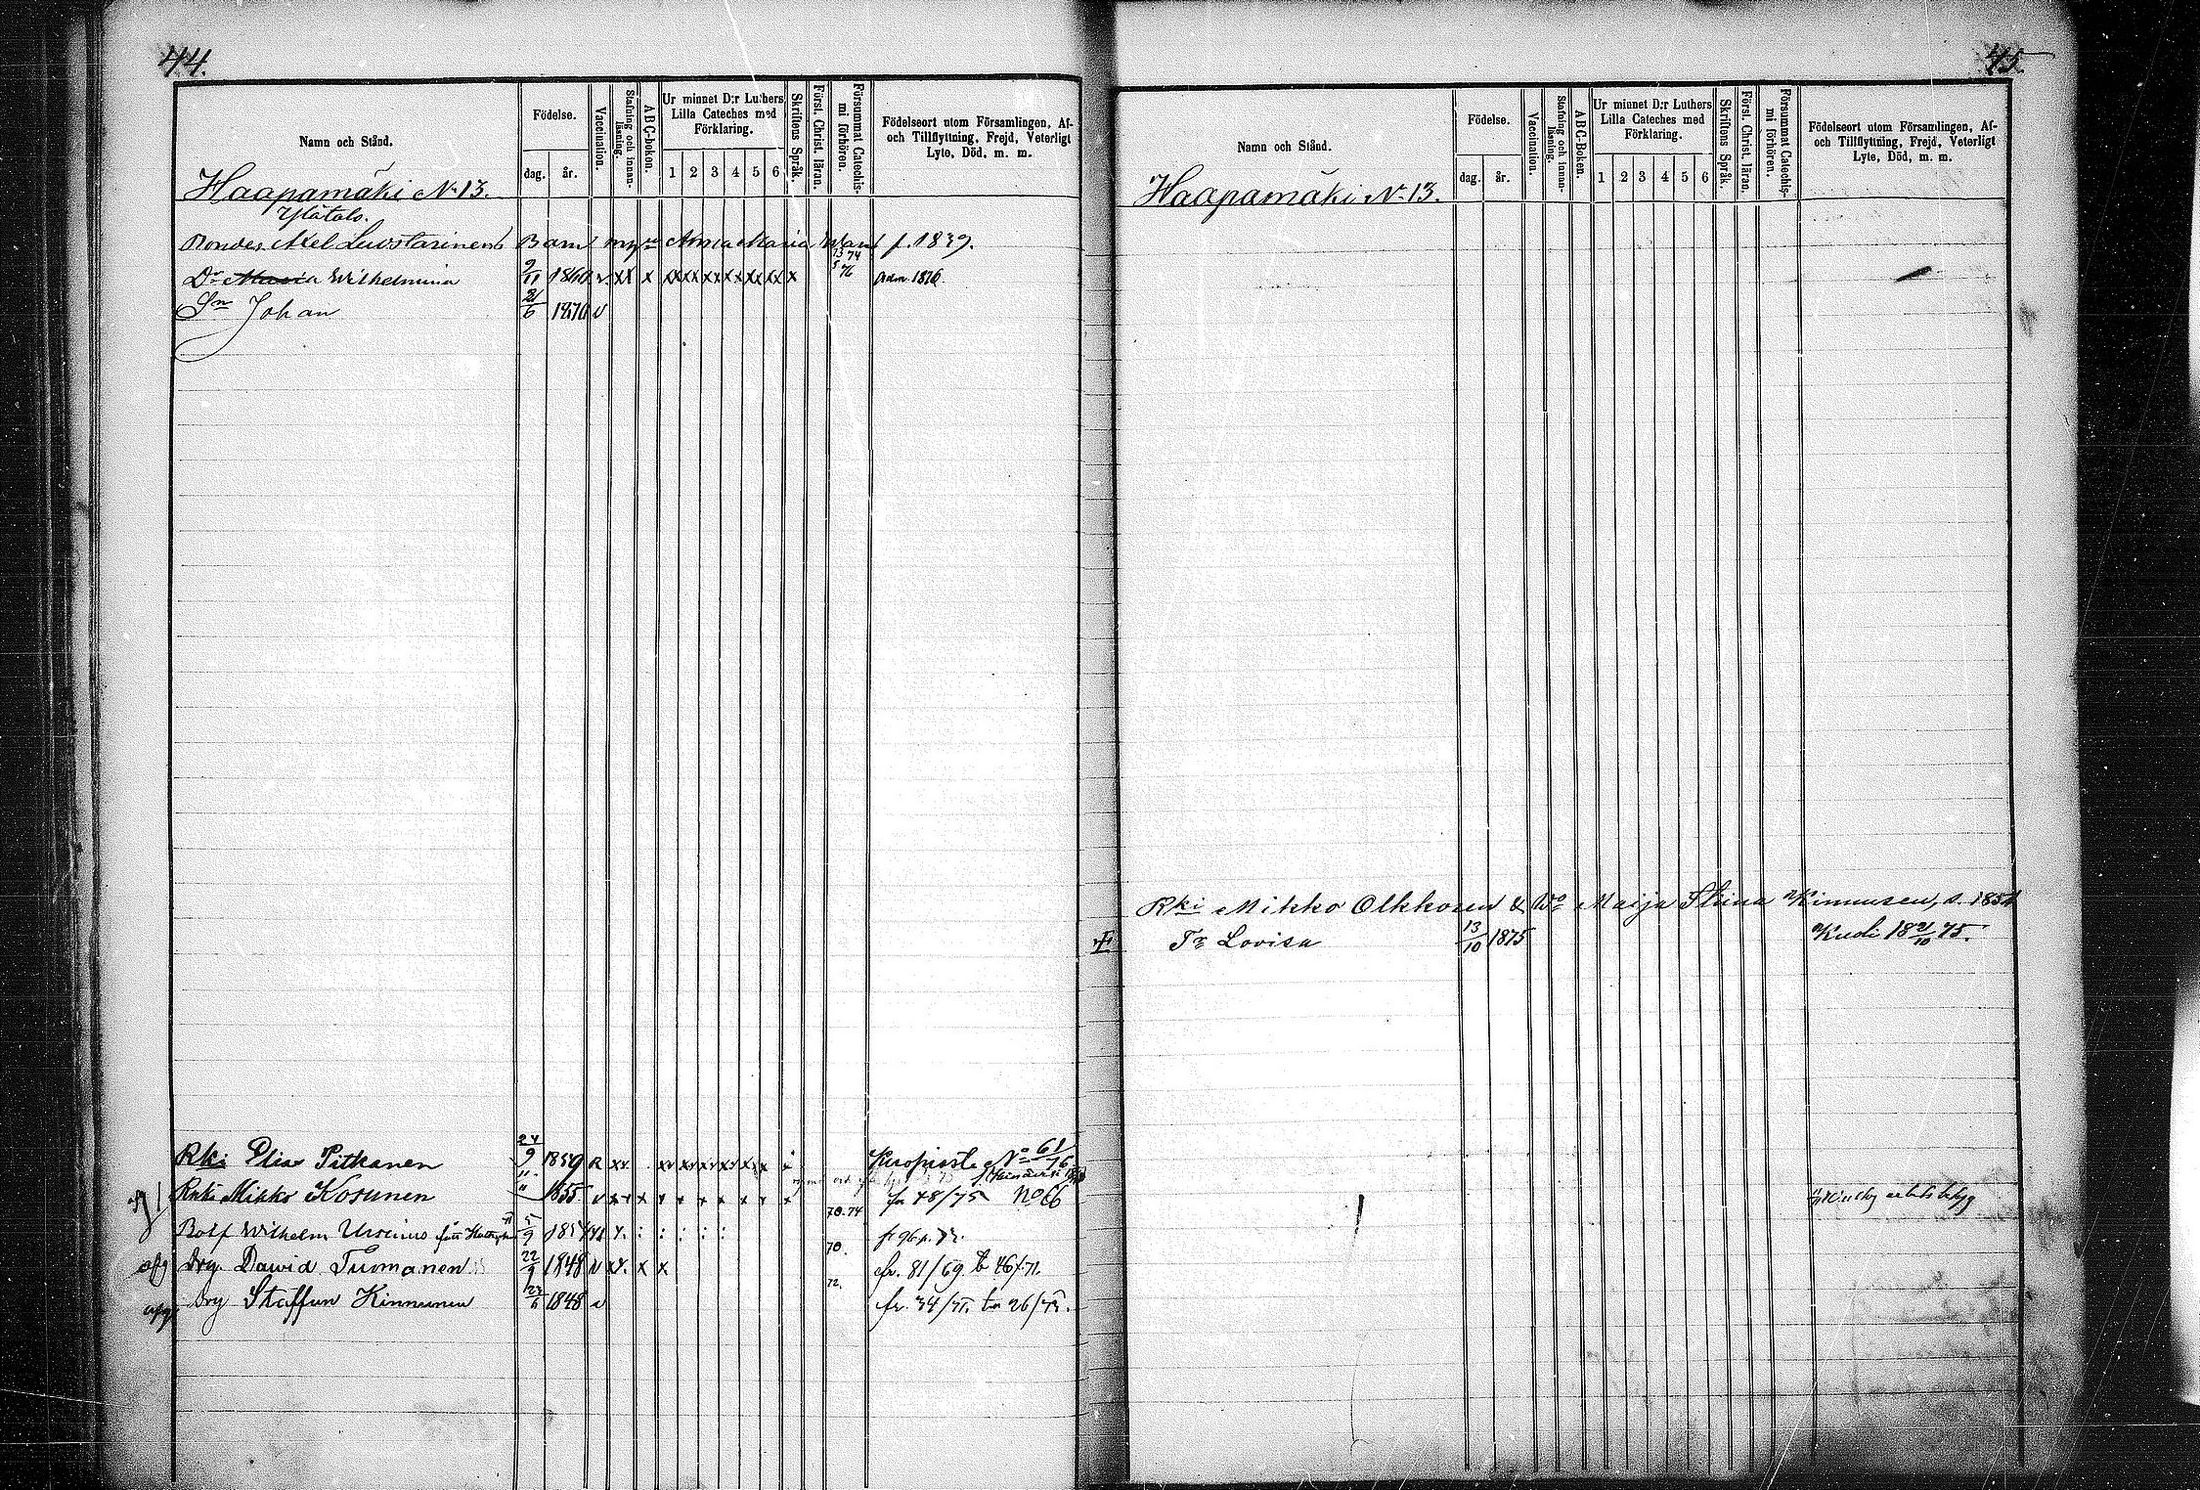 44.
Namn och Stånd.
Födelse.
dag.
år.
Vaccination.
Stafning och innanläsning.
ABC-boken.
Ur minnet D:r Luthers Lilla Cateches med Förklaring.
1 2 3 4 5 6
Skriftens Språk.
Först. Christ. läran.
Försummat Catechismi förhören.
Födelseort utom Församlingen, Af-
och Tillflyttning, Frejd, Veterligt
Lyte, Död, m. m.
Haapamäki N. 13.
Ylätalo.
Bonden Axel Luostarinens Barn Anna Maria f. 1839.
Dr Maria Wilhelmina 9/11 1860 v. xx x xx xx xx xx xx xx x Adm. 1876.
Sn Johan 21/6 1870 v
Rki Elias Pitkänen 24/9 1859 N 61/76
Rnki Mikko Kosunen 1855 v fr 48/75 No 66
Rolf Wilhelm Ursinus 5/9
Drg Dawid Tuomanen 22/9 1848 v xx. x x 70. fr. 81/69. b 46/71.
Drg Staffan Kinnunen 1848 v 72. fr. 34/71. 26/73.
45.
Namn och Stånd.
Födelse.
dag.
år.
Vaccination.
Stafning och innanläsning.
ABC-Boken.
Ur minnet D:r Luthers Lilla Cateches med Förklaring.
1 2 3 4 5 6
Skriftens Språk.
Först. Christ. läran.
Försummat Catechismi förhören.
Födelseort utom Församlingen, Af-
och Tillflyttning, Frejd, Veterligt
Lyte, Död, m. m.
Haapamäki N. 13.
Rki Mikko Olkkonen & Wo Maija Stiina Kinnusen, s. 1851
Tr Lovisa 13/10 1875 Kuoli 18 21/10 75.